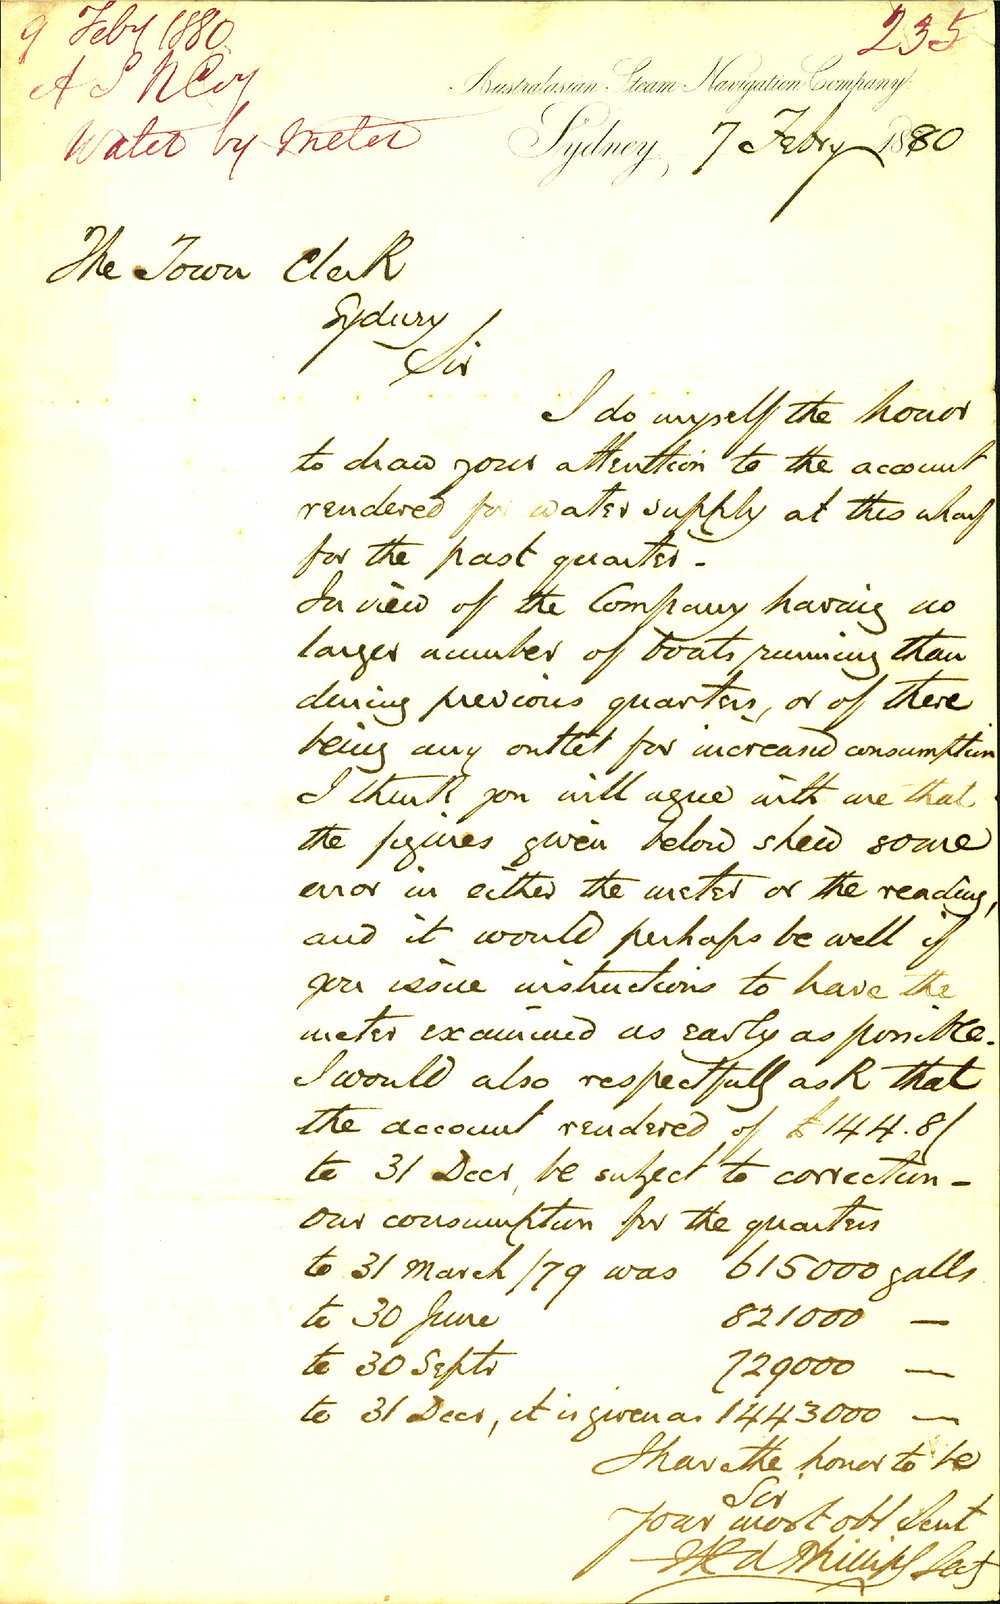 9 Feby 1880
235
A S N Coy
Water by Meter
Australasian Steam Navigation Company
Sydney 7 Febry 1880
The Town Clerk
Sydney
Sir
I do myself the honor
to draw your attention to the account
rendered for water supply at this wharf
for the past quarter -
In view of the Company having no
larger number of boats running than
during previous quarters, or of there
being any outlet for increased consumption
I think you will agree with me that
the figures given below shew some
error in either the meter or the reading,
and it would perhaps be well if
you issue instructions to have the
meter examined as early as possible.
I would also respectfully ask that
the account rendered of £144.8/
to 31 Decr, be subject to correction -
Our consumption for the quarters
to 31 March /79 was 615000 galls
to 30 June 821000 —
to 30 Septr 729000 —
to 31 Decr, it is given as 1443000 —
I have the honor to be
Sir
Your most obt Servt
Phillips Secy